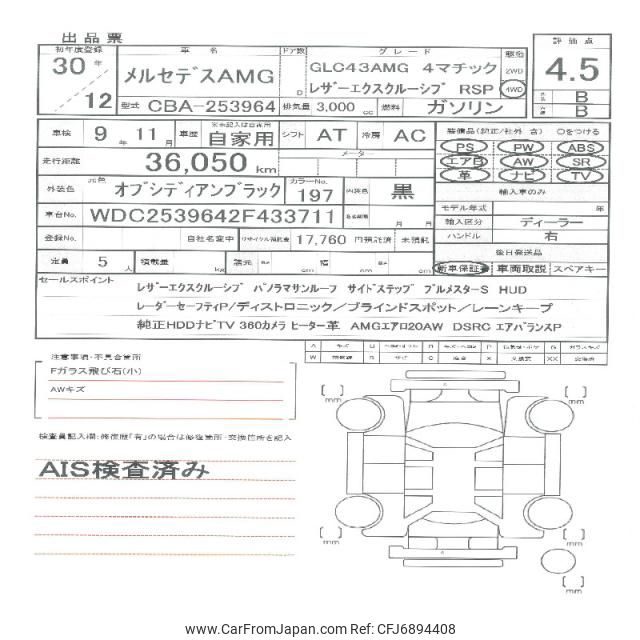 出品票
初年度登録 車名 ドア数 グレード 駆動 評価点
30年 メルセデスAMG GLC43AMG 4マチック 2WD 4.5
レザーエクスクルーシブ RSP 4WD
12 D B
型式 CBA-253964 排気量 3,000 cc 燃料 ガソリン B
車検 9年 11月 車歴 ※未記入は自家用 自家用 シフト AT 冷房 AC 装備品(純正/社外 含) ○をつける
PS PW ABS
走行距離 36,050 km メーター エアB AW SR
革 ナビ TV
外装色 元色 オブシディアンブラック カラーNo. 197 内装色 黒 輸入車のみ
モデル年式 年
車台No. WDC2539642F433711 月 月 輸入区分 ディーラー
ハンドル 右
登録No. 自社名変中 リサイクル預託金 17,760 円預託済 未預託
後日発送品
定員 5人 積載量 kg 諸元 長さ cm 幅 cm 高さ cm 新車保証書 車両取説 スペアキー
セールスポイント
レザーエクスクルーシブ パノラマサンルーフ サイドステップ ブルメスターS HUD
レーダーセーフティP/ディストロニック/ブラインドスポット/レーンキープ
純正HDDナビTV 360カメラ ヒーター革 AMGエアロ20AW DSRC エアバランスP
注意事項・不具合箇所
Fガラス飛び石(小)
AWキズ
検査員記入欄:修復歴「有」の場合は修復箇所・交換箇所を記入
AIS検査済み
mm
mm
mm
mm
mm
www.CarFromJapan.com Ref: CFJ6894408